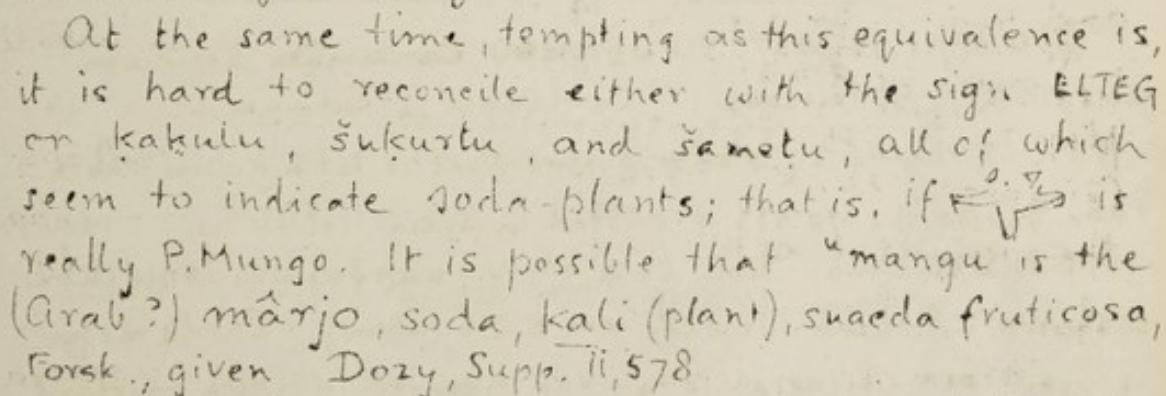 At the same time, tempting as this equivalence is,
it is hard to reconcile either with the sign ELTEG
or ḳaḳulu, šuḳurtu, and šameṭu, all of which
seem to indicate soda-plants; that is, if is
really P. Mungo. It is possible that ᵘmangu is the
(Arab?) mârjo, soda, kali (plant), suaeda fruticosa,
Forsk., given Dozy, Supp. ii, 578